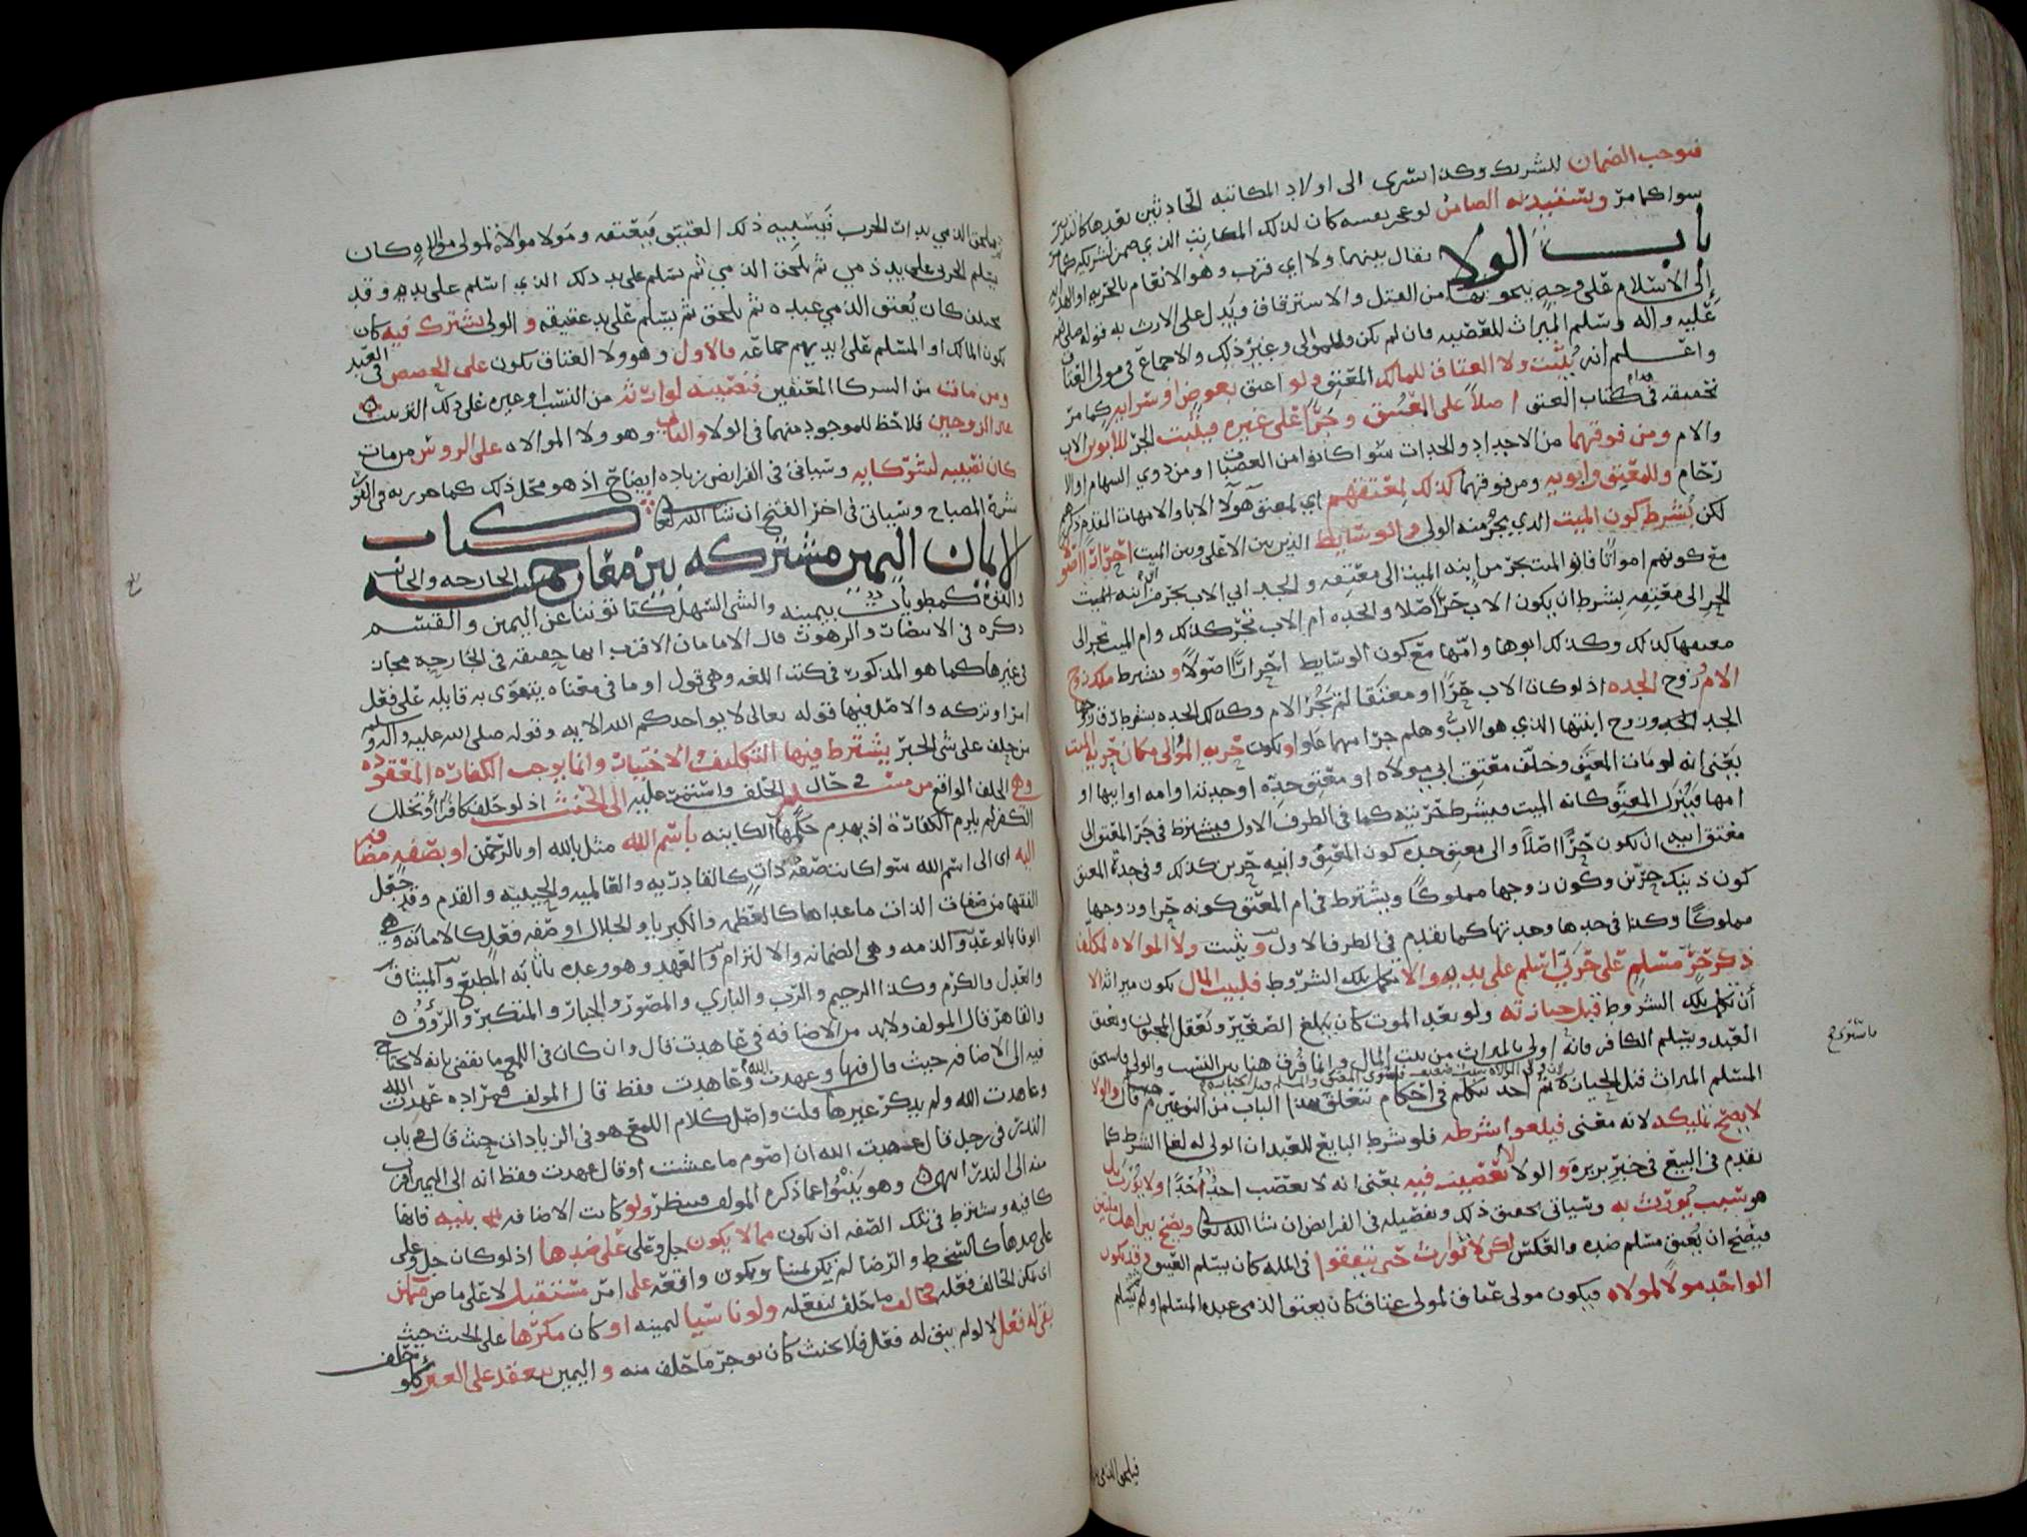 فيوجب الضمان للشريك وكذا تسرى الى اولاد المكاتبه الحادثين بعدها
سوا كما مر ويستبد به الضامن لو عجز نفسه كان لذلك المكاتب الذي ضمن لشريكه كما مر
باب الولا يقال بينهما ولا اي قرب وهو الانعام بالحريه او الهدايه
إلى الاسلام على وجه من القتل والاسترقاق ويدل على الارث به قوله صلى الله
عليه واله وسلم الميراث للعصبه فان لم يكن فللمولى وغير ذلك والاجماع في مولى العتاق
واعلم انه يثبت ولا العتاق للمالك المعتق ولو اعتق بعوض او سرايه كما مر
تحقيقه في كتاب العتق اصلا على العتيق وجرا على غيره فيثبت الجر للابوين الاب
والام ومن فوقهما من الاجداد والجدات سوا كانوا من العصبات او من ذوي السهام او الا
رحام وللمعتق وابويه ومن فوقهما كذلك لمعتقهم اي لمعتق هولا الابا والامهات المقدم ذكرهم
لكن يشرط كون الميت الذي يجر منه الولى والوسايط الذين بين الاعلى وبين الميت احرارا اصولا
مع كونهم امواتا فابو الميت يجر من ابنه الميت الى معتقه والجد ابي الاب يجر من ابن ابنه الميت
الجر الى معتقه بشرط ان يكون الاب حرا اصلا والجده ام الاب تجر كذلك وام الميت تجر الى
معتقها كذلك وكذلك ابوها وامها مع كون الوسايط احرارا اصولا ويشرط ملك زوج
الام زوج الجده اذ لو كان الاب حرا او معتقا لم تجر الام وكذلك الجده يشرط رق زوجها
الجد الجد وزوج ابنتها الذي هو الاب وهلم جرا مهما علوا او يكون حريه المولى مكان حريه الميت
يعني انه لو مات المعتق وخلف معتق ابي مولاه او معتق جده او جدته او امه او ابيها او
امها فينزل المعتق كانه الميت فيشرط حريته كما في الطرف الاول فيشترط في جر المعتق الى
معتق ابيه ان يكون حرا اصلا والى معتق جده كون المعتق وابيه حرين كذلك وفي جدة المعتق
كون ذينك حرين وكون زوجها مملوكا ويشترط في ام المعتق كونه حرا وزوجها
مملوكا وكذا في جدها وجدتها كما تقدم في الطرف الاول ويثبت ولا الموالاه لمكلف
ذكر حر مسلم على حربي اسلم على يديه والا تكمل تلك الشروط فلبيت المال يكون ميراثه الا
أن تكمل تلك الشروط قبل حيازته ولو بعد الموت كان يبلغ الصغير ويعقل المجنون ويعتق
العبد ويسلم الكافر فانه اولى بالميراث من بيت المال وانما فرق هنا بين النسب والولى فاستحق
المسلم الميراث قبل الحيازة ثم اخذ يتكلم في احكام تتعلق بهذا الباب من النوعين فقال والولا
لا يصح تمليكه لانه معنى فيلغوا شرطه فلو شرط البايع للعبد ان الولى له لغا الشرط كما
تقدم في البيع في خبر بريرة والولا لا تعصيب فيه يعني انه لا يعصب احد احدا ولا يورث بل
هو سبب يورث به وسياتي تحقيق ذلك وتفصيله في الفرايض ان شا الله تعالى ويصح بين اهل ملتين
فيصح ان يعتق مسلم ضده والعكس لكن لا توارث حتى يتفقوا في المله كان يسلم العتيق وقد يكون
الواحد مولا لمولاه فيكون مولى عتاق لمولى عتاق كان يعتق الذمي عبده المسلم او يسلم
فيلحق الذمي بدار
باستروح
فيلحق الذمي بدار الحرب فيسبيه ذلك العتيق فيعتقه ومولا موالاه لمولى موالاه كان
يسلم الحربى على يد ذمي ثم يلحق الذمي ثم يسلم على يد ذلك الذي اسلم على يديه وقد
يختلف كان يعتق الذمي عبده ثم يلحق ثم يسلم على يد عتيقه والولى يشترك فيه كان
يكون المالك او المسلم على ايديهم جماعه فالاول وهو ولا العتاق يكون على الحصص في العبد
ومن مات من الشركا المعتقين فنصيبه لوارثه من النسب او غيره على ذلك الترتيب
غير الزوجين فلا حظ للموجود منهما في الولا والثاني وهو ولا الموالاه على الروس من مات
كان نصيبه لشركايه وسياتي في الفرايض زياده ايضاح اذ هو محل ذلك كما هو
شرة المصباح وسياتي في اخر الفتح ان شا الله تعالى كتاب
الايمان اليمين مشتركه بين معان خمسه الجارحه والجانب
والقوة كمطويات بيمينه والشي السهل كتاتوننا عن اليمين والقسم
ذكره في الانتصاف والزهور قال الامام ان الاقرب انها حقيقه في الجارحه مجاز
في غيرها كما هو المذكور في كتب اللغه وهي قول او ما في معناه يتقوى به قايله على فعل
امر او تركه والاصل فيها قوله تعالى لا يواخذكم الله الايه وقوله صلى الله عليه واله وسلم
من حلف على شى الخبر يشترط فيها التكليف والاختيار وانما يوجب الكفارة المعقودة
وهي الحلف الواقع من مسلم في حال الحلف واستمرت عليه الى الحنث اذ لو حلف كافرا او تخلل
الكفر لم يلزم الكفارة اذ يهدم حكمها الكاينه باسم الله مثل بالله او بالرحمن او بصفه مضافه
اليه اى الى اسم الله سوا كانت صفة ذات كالقادريه والعالميه والحييه والقدم وقد جعل
الفقها من صفات الذات ما عداها كالعظمه والكبريا والجلال او صفه فعل كالامانه وهي
الوفا بالوعد والذمه وهى الضمانه والالتزام والعهد وهو وعده باثابه المطيع والميثاق
والعدل والكرم وكذا الرحيم والرب والباري والمصور والجبار والمتكبر والرؤف
والقاهر قال المولف ولا بد من الاضافه في عاهدت قال وان كان في اللمع ما يقضي بانه لا يحتاج
فيه الى الاضافه حيث قال فيها وعهدت الله وعاهدت فقط قال المولف فمراده عهدت الله
وعاهدت الله ولم يذكر غيرها قلت واصل كلام اللمع هو في الزيادات حيث قال في باب
النذر في رجل قال عهدت الله ان اصوم ما عشت او قال عهدت فقط انه الى اليمين اقرب
منه الى النذر انتهى وهو ينبئ عما ذكره المولف فينظر ولو كانت الاضافه بنيه فانها
كافيه ويشترط في تلك الصفه ان يكون مما لا يكون جل وعلى على ضدها اذ لو كان جل وعلى
على ضدها كالسخط والرضا لم يكن يمينا ويكون واقعه على امر مستقبل لا على ماض ممكن
اى يمكن الحالف فعله مخالف ما حلف ليفعله ولو ناسيا ليمينه او كان مكرها على الحنث حيث
بقي له فعل لا لو لم يبق له فعل فلا يحنث كان يوجر ما حلف منه واليمين تنعقد على الغير كلو حلف